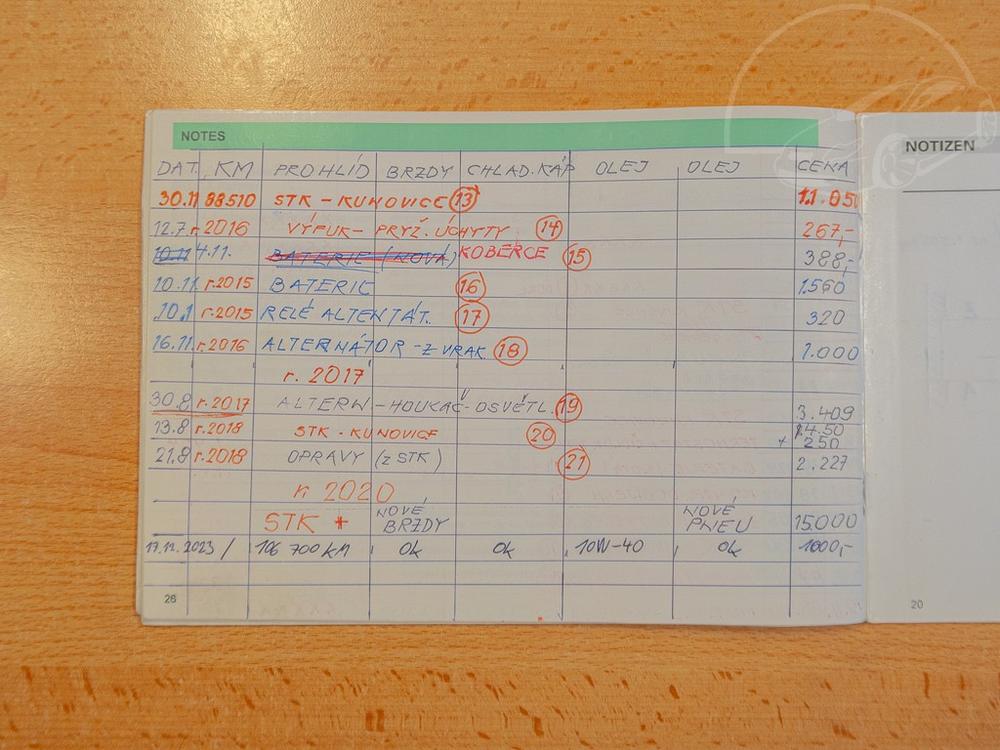 NOTES
NOTIZEN
DAT. KM PROHLÍD BRZDY CHLAD.KÁP OLEJ OLEJ CENA
30.11 88510 STK - KUNOVICE 13
12.7. r.2016 VÝFUK - PRYŽ. ÚCHYTY 14 267,-
10.11 4.11. BATERIE (NOVÁ) KOBERCE 15 388,-
10.11. r.2015 BATERIE 16 1.560
10.1 r.2015 RELÉ ALTENTÁT. 17 320
16.11. r.2016 ALTERNÁTOR - Z VRAK 18 1.000
r. 2017
30.8 r.2017 ALTERN - HOUKAČ - OSVĚTL. 19 3.409
13.8 r.2018 STK - KUNOVICE 20 14.50
+ 250
21.8 r.2018 OPRAVY (z STK) 21 2.227
r 2020
STK + NOVÉ BRZDY NOVÉ PNEU 15.000
17.12.2023 / 106 700 KM Ok Ok 10W-40 Ok 1000,-
26
20